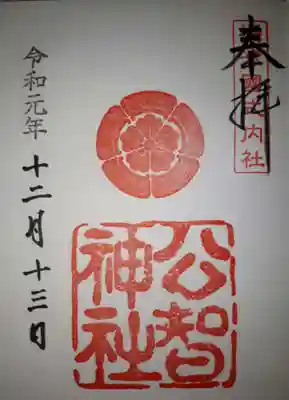 奉拝
式内社
公智
神社
令和元年 十二月 十三日